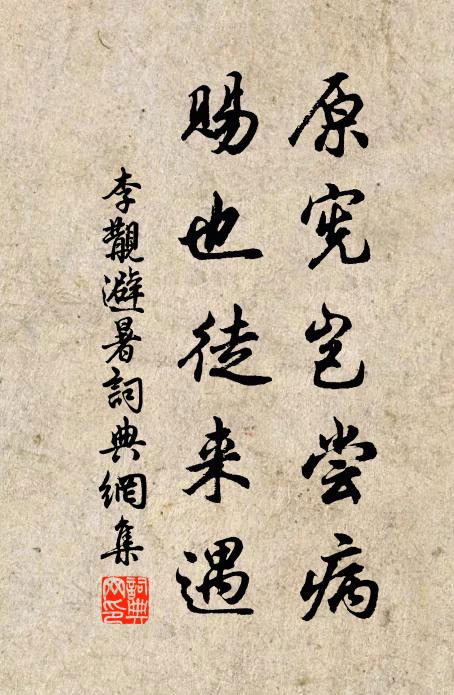 原宪岂尝病
赐也徒来遇
李觏避暑詞典網集
詞典
网印